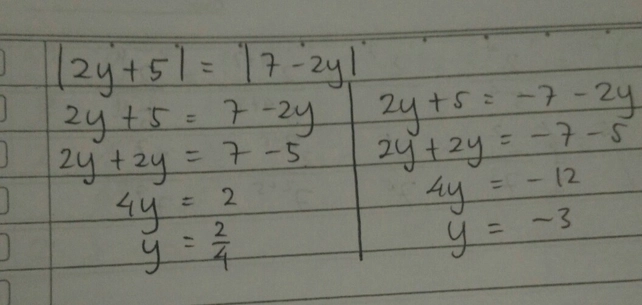 |2y + 5| = |7 - 2y|
2y + 5 = 7 - 2y
2y + 2y = 7 - 5
4y = 2
y = 2/4
2y + 5 = -7 - 2y
2y + 2y = -7 - 5
4y = -12
y = -3